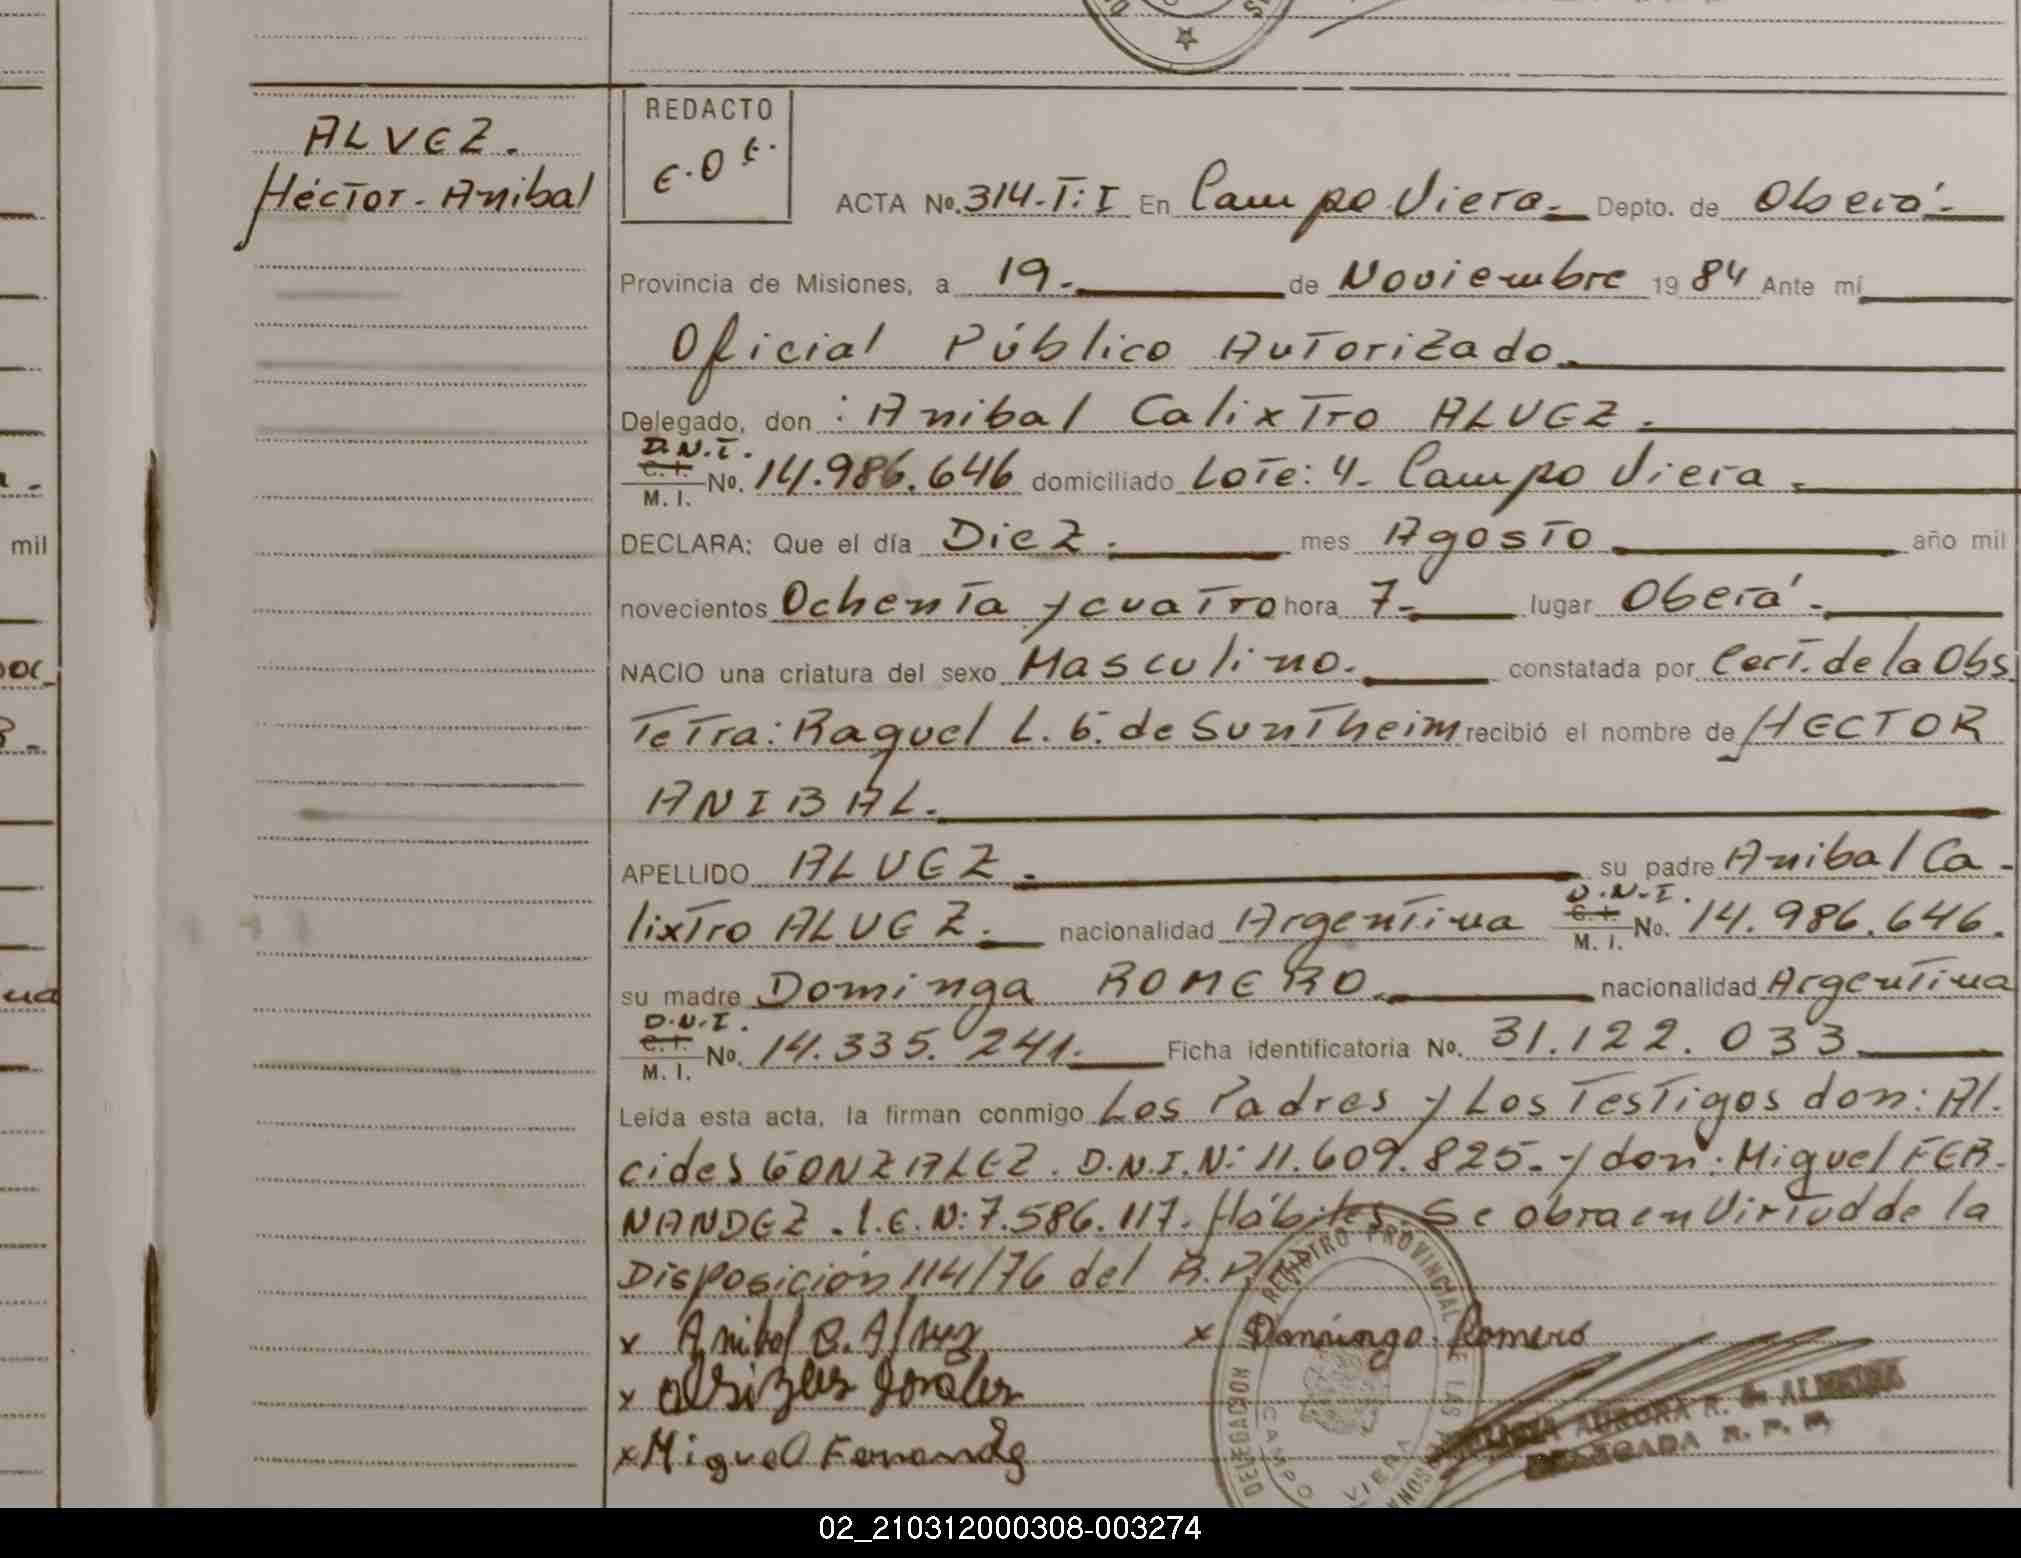 ALVEZ.
Héctor-Anibal
REDACTO
E.O.E.
ACTA No. 314-T:I En Campo Viera.- Depto. de Oberá.-
Provincia de Misiones, a 19.- de Noviembre 1984 Ante mí
Oficial Público Autorizado.
Delegado, don : Anibal CalixTro ALVEZ.
D.N.I.
C. I.
M. I. No. 14.986.646 domiciliado Lote: 4- Campo Viera.
DECLARA: Que el día Diez.- mes Agosto año mil
novecientos Ochenta y cuatro hora 7- lugar Oberá.-
NACIO una criatura del sexo Masculino. constatada por Cert. de la Obs
Tetra: Raquel L. G. de Suntheim recibió el nombre de HECTOR
ANIBAL.
APELLIDO ALVEZ. su padre Anibal Ca-
lixTro ALVEZ. nacionalidad Argentina D.N.I. C. I. M. I. No. 14.986.646.
su madre Dominga ROMERO. nacionalidad Argentina
D.N.I.
C. I.
M. I. No. 14.335.241. Ficha identificatoria No. 31.122.033
Leída esta acta, la firman conmigo Los Padres y Los Testigos don: Al.
cides GONZALEZ. D.N.I.N: 11.609.825.- y don: Miguel FER-
NANDEZ. L.E.N: 7.586.117. Hábiles. Se obra en Virtud de la
Disposición 114/76 del R.P.
x Anibal C. Alvez x Dominga Romero
x
x Miguel Fernandez
DELEGACION REGISTRO PROVINCIAL DE LAS PERSONAS
CAMPO VIERA
AURORA R. de ALMEIDA
DELEGADA R. P. P.
02_210312000308-003274